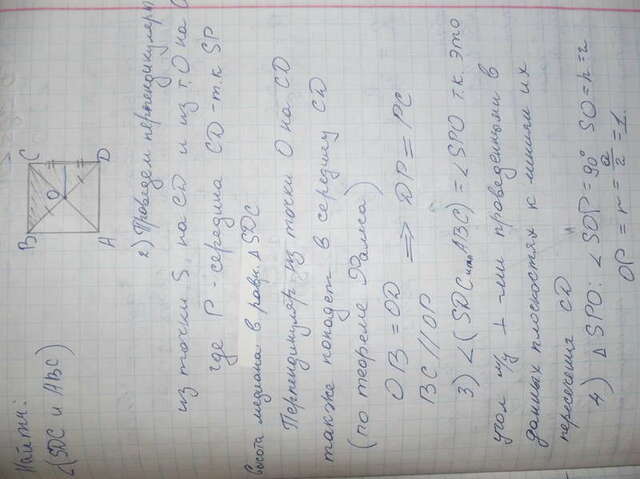 Найти:
∠(SDC и ABC)
B
C
O
A
D
2) Проведём перпендикуляры
из точки S, на CD и из т. O на C
где P - середина CD - т.к SP
высота медиана в равн. Δ SDC
Перпендикуляр из точки O на CD
также попадет в середину CD
(по теореме Фалеса)
OB = OD
BC // OP ⟹ DP = PC
3) ∠(SDC и ABC) = ∠SPO т.к. это
угол м/у ⊥-ми проведенными в
данных плоскостях к линиям их
пересечения CD
4) Δ SPO: ∠SOP = 90° SO = h = 2
OP = r = a/2 = 1.